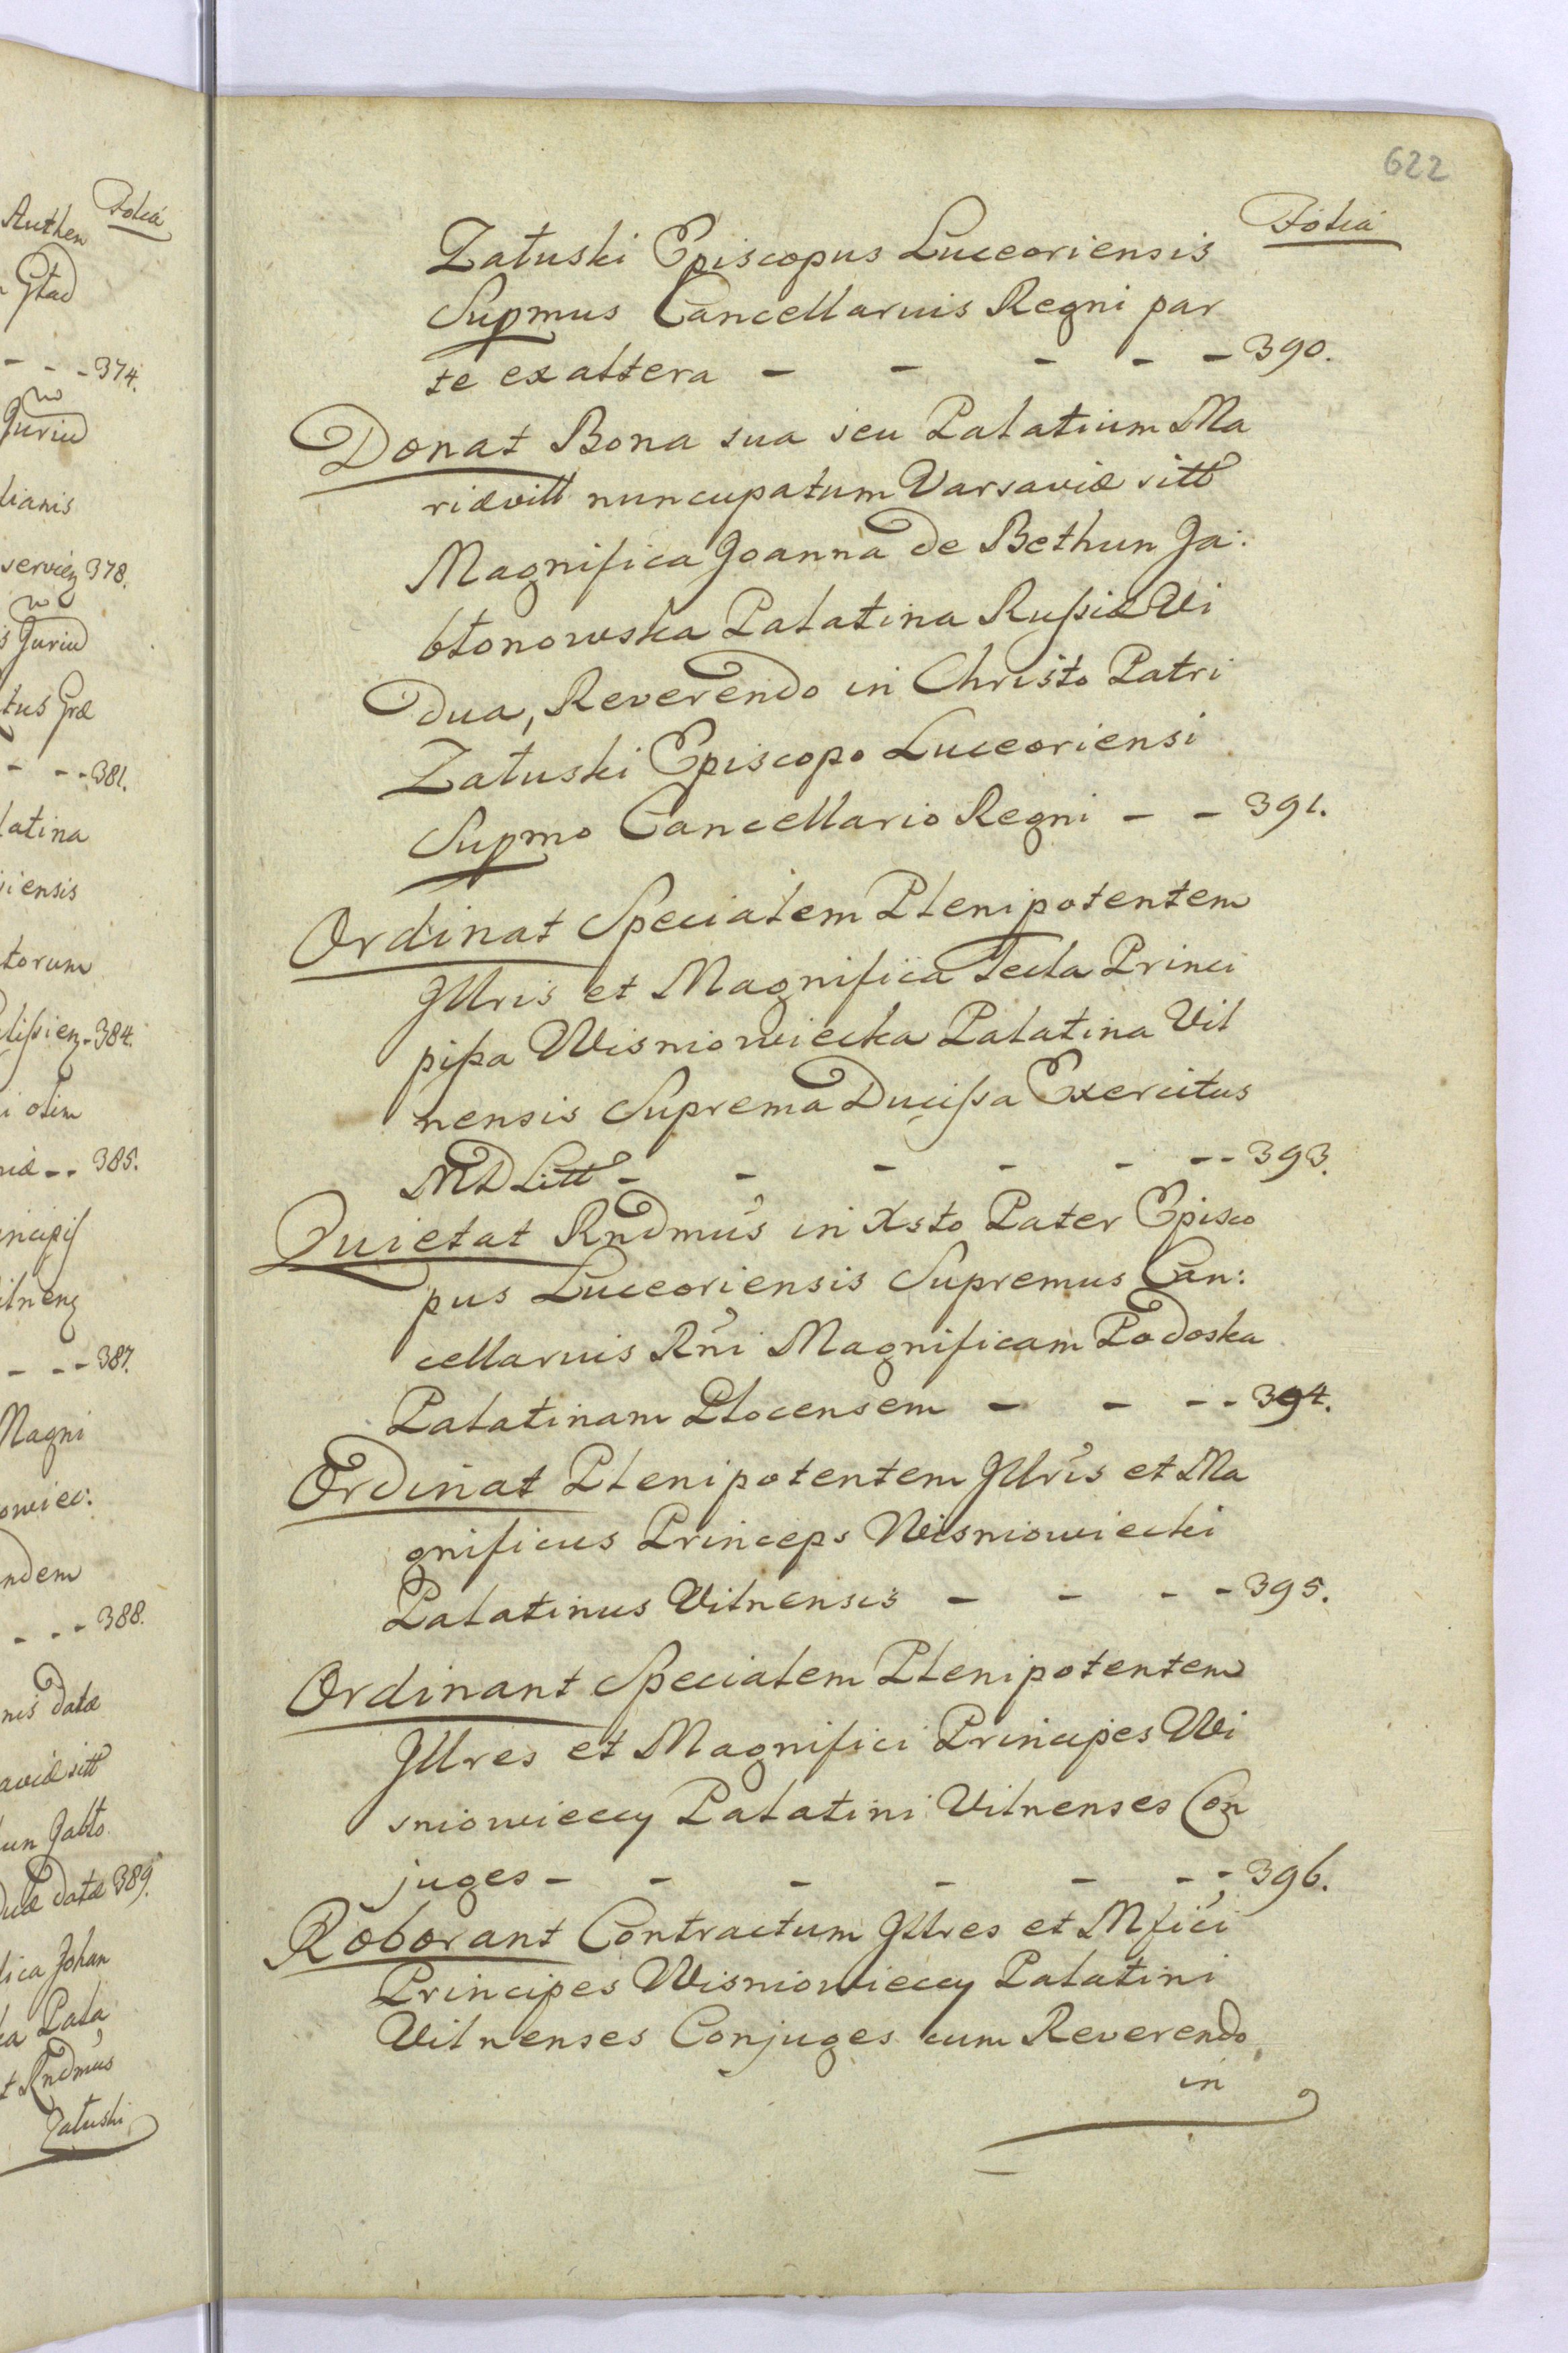 622
Folia
Załuski Episcopus Luceoriensis
Supmus Cancellarius Regni par
te ex altera - - - - - 390.
Donat Bona sua seu Palatium Ma
riævill nuncupatum Varsaviæ sitt
Magnifica Joanna de Bethun Ja:
błonowska Palatina Russiæ Vi
dua, Reverendo in Christo Patri
Załuski Episcopo Luceoriensi
Supmo Cancellario Regni - - 391.
Ordinat Specialem Plenipotentem
Jllris et Magnifica Tecla Princi
pissa Wisniowiecka Palatina Vil
nensis Suprema Ducissa Exercitus
MDLitt - - - - - - - 393.
Quietat Rndmus in Xsto Pater Episco
pus Luceoriensis Supremus Can:
cellarius Rni Magnificam Podoska
Palatinam Plocensem - - - - 394.
Ordinat Plenipotentem Jllris et Ma
gnificus Princeps Wisniowiecki
Palatinus Vilnensis - - - - 395.
Ordinant Specialem Plenipotentem
Jllres et Magnifici Principes Wi
sniowieccy Palatini Vilnenses Con
juges - - - - - - - 396.
Roborant Contractum Jllres et Mfici
Principes Wisniowieccy Palatini
Vilnenses Conjuges cum Reverendo
in
Folia
Authen
- - - 374.
Juriu
lianis
378.
Juriu
tus Græ
- - - 381.
latina
iensis
torum
384.
olim
- - 385.
- - - 387.
Magni
owiec:
ndem
- - - 388.
nis datæ
aviæ sitt
un Jabło
duæ datæ 389.
fica Johan
ka Pala
t Rndmus
Załuski